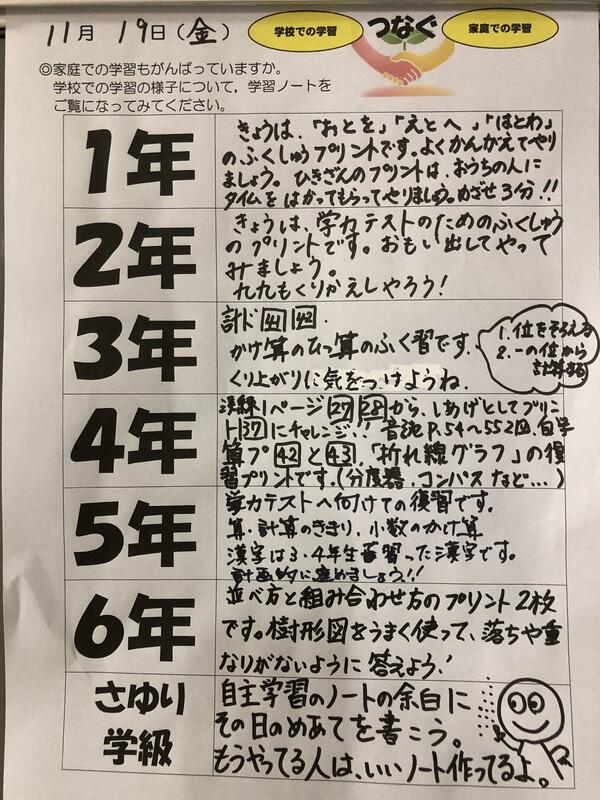 11月 19日（金）
学校での学習
つなぐ
家庭での学習
◎家庭での学習もがんばっていますか。
学校での学習の様子について，学習ノートを
ご覧になってみてください。
1年
きょうは、「おとを」「えとへ」「はとわ」
のふくしゅうプリントです。よくかんがえてやり
ましょう。ひきざんのプリントは、おうちの人に
タイムをはかってもらってやりましょう。めざせ3分！！
2年
きょうは、学力テストのためのふくしゅう
のプリントです。おもい出してやって
みましょう。
九九もくりかえしやろう！
3年
計ド 41 42 .
かけ算のひっ算のふく習です.
くり上がりに気をつけようね.
1. 位をそろえる
2. 一の位から
計算する
4年
漢練1ページ 27 28 から、しあげとしてプリン
ト 37 にチャレンジ！！音読P.54〜55 2回、自学
算プ 42 と 43 、「折れ線グラフ」の復
習プリントです。(分度器、コンパスなど…)
5年
学力テストへ向けての復習です。
算・計算のきまり、小数のかけ算
漢字は3・4年生習った漢字です。
計画的に進めましょう！！
6年
並べ方と組み合わせ方のプリント2枚
です。樹形図をうまく使って、落ちや重
なりがないように答えよう！
さゆり
学級
自主学習のノートの余白に
その日のめあてを書こう。
もうやってる人は、いいノート作ってるよ。